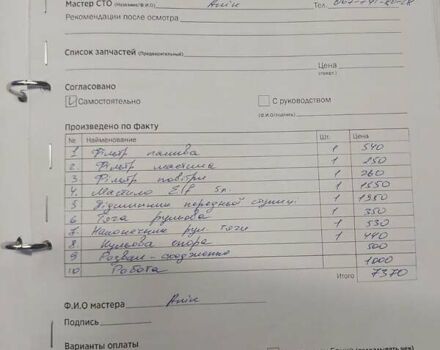 Мастер СТО (Название/Ф.И.О) Алік Тел.
Рекомендации после осмотра
Список запчастей (Предварительный)
Цена
Согласовано
Самостоятельно С руководством
(Ф.И.О/подпись)
Произведено по факту
№ Наименование Шт. Цена
1 Фільтр палива 1 540
2 Фільтр мастила 1 250
3 Фільтр повітря 1 260
4 Мастило Elf 5л. 1 1550
5 передньої 1 1350
6 Тяга рульова 1 350
7 Наконечник рул тяги 1 530
8 Кульова опора 1 440
9 Розвал-сходження 500
10 Робота 1000
Итого 7370
Ф.И.О мастера Алік
Подпись
Варианты оплаты